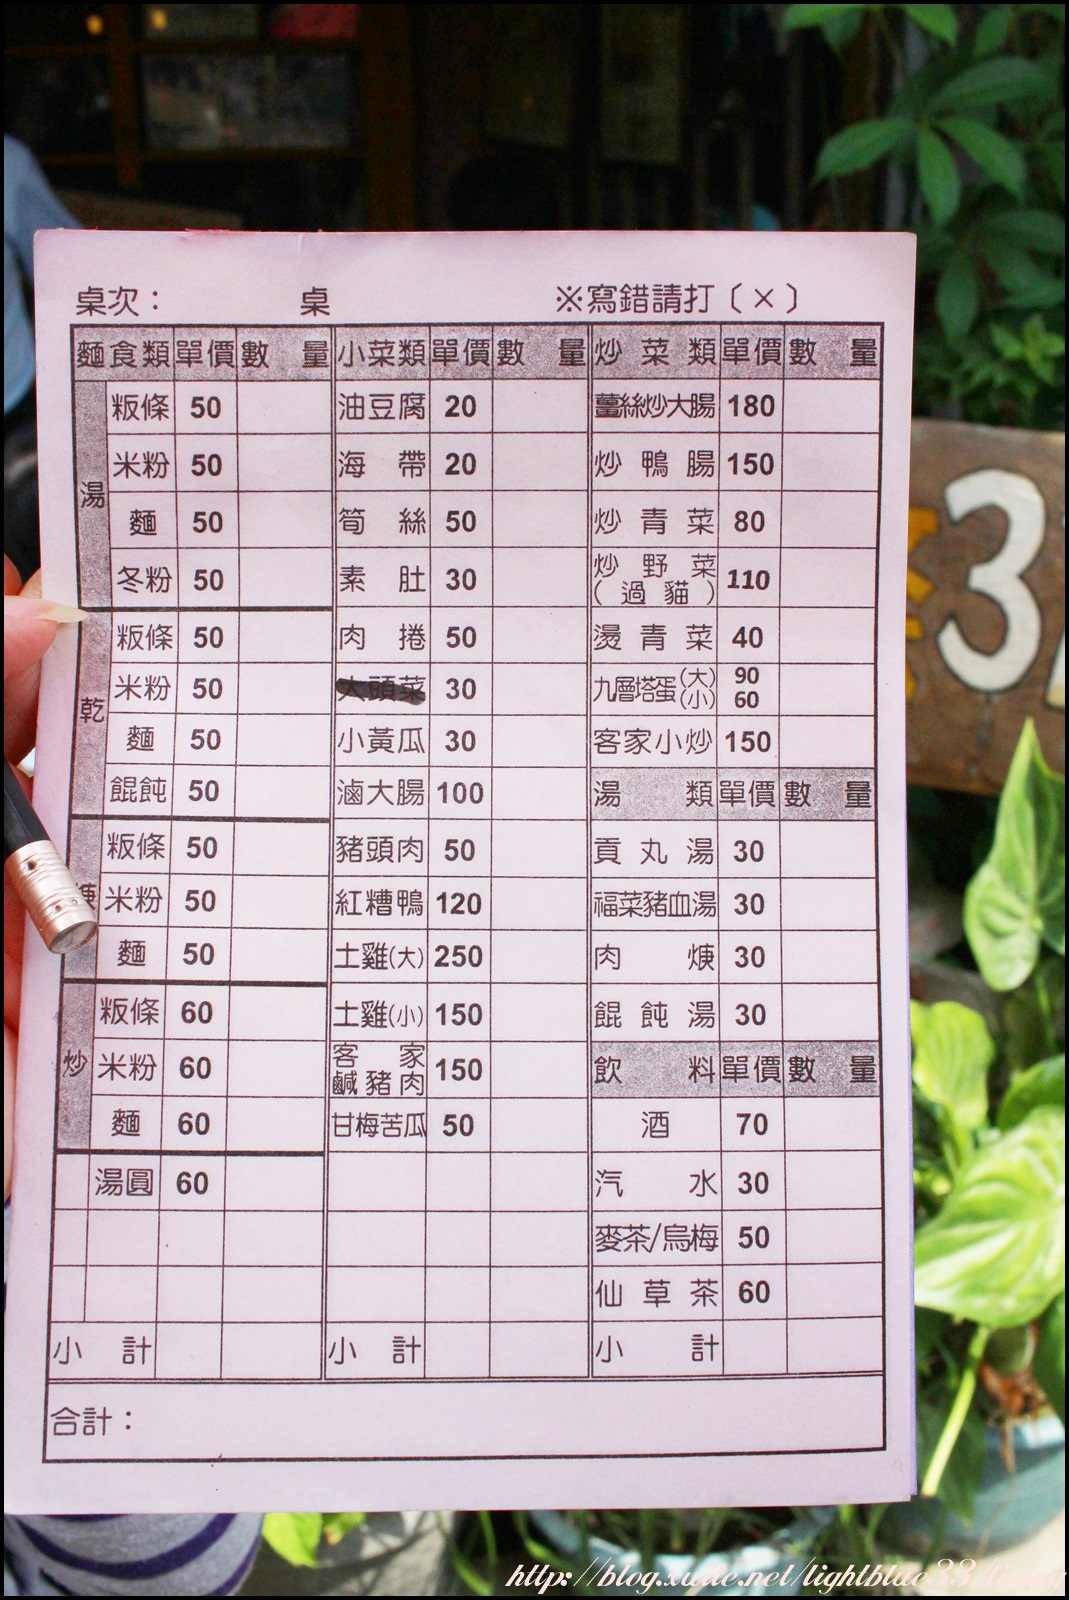 桌次： 桌 ※寫錯請打〔×〕
麵食類 單價 數量 小菜類 單價 數量 炒菜類 單價 數量
湯 粄條 50 油豆腐 20 薑絲炒大腸 180
米粉 50 海帶 20 炒鴨腸 150
麵 50 筍絲 50 炒青菜 80
冬粉 50 素肚 30 炒野菜(過貓) 110
乾 粄條 50 肉捲 50 燙青菜 40
米粉 50 大頭菜 30 九層塔蛋(大)(小) 90 60
麵 50 小黃瓜 30 客家小炒 150
餛飩 50 滷大腸 100 湯類 單價 數量
粄條 50 豬頭肉 50 貢丸湯 30
米粉 50 紅糟鴨 120 福菜豬血湯 30
麵 50 土雞(大) 250 肉焿 30
炒 粄條 60 土雞(小) 150 餛飩湯 30
米粉 60 客家鹹豬肉 150 飲料 單價 數量
麵 60 甘梅苦瓜 50 酒 70
湯圓 60 汽水 30
麥茶/烏梅 50
仙草茶 60
小計 小計 小計
合計：
3